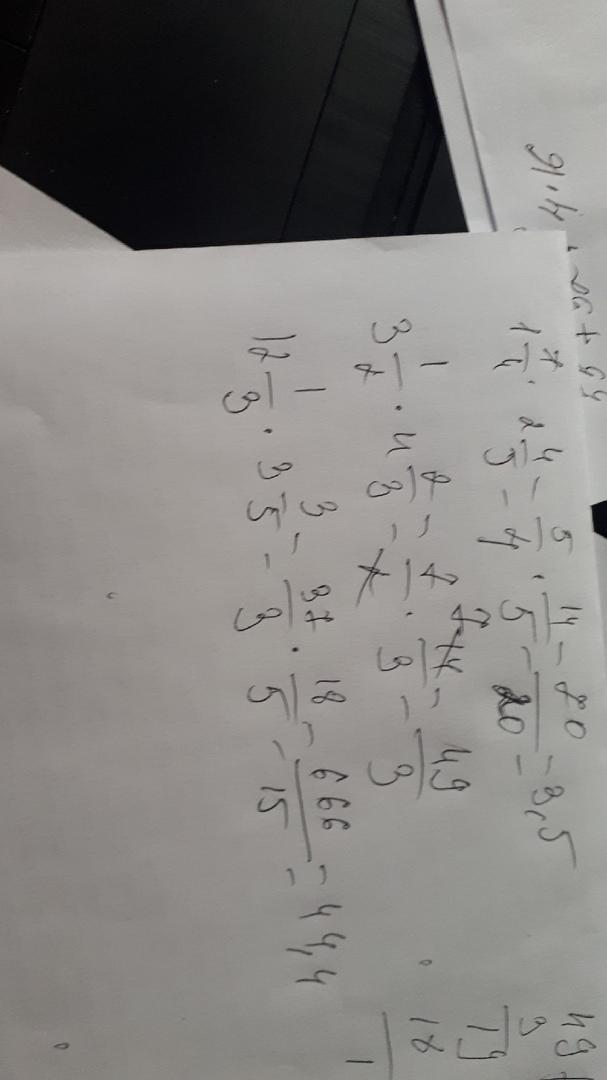 1 1/4 · 2 4/5 = 5/4 · 14/5 = 70/20 = 3,5
3 1/2 · 4 2/3 = 7/2 · 14/3 = 49/3
12 1/3 · 3 3/5 = 37/3 · 18/5 = 666/15 = 44,4
49
3
19
18
1